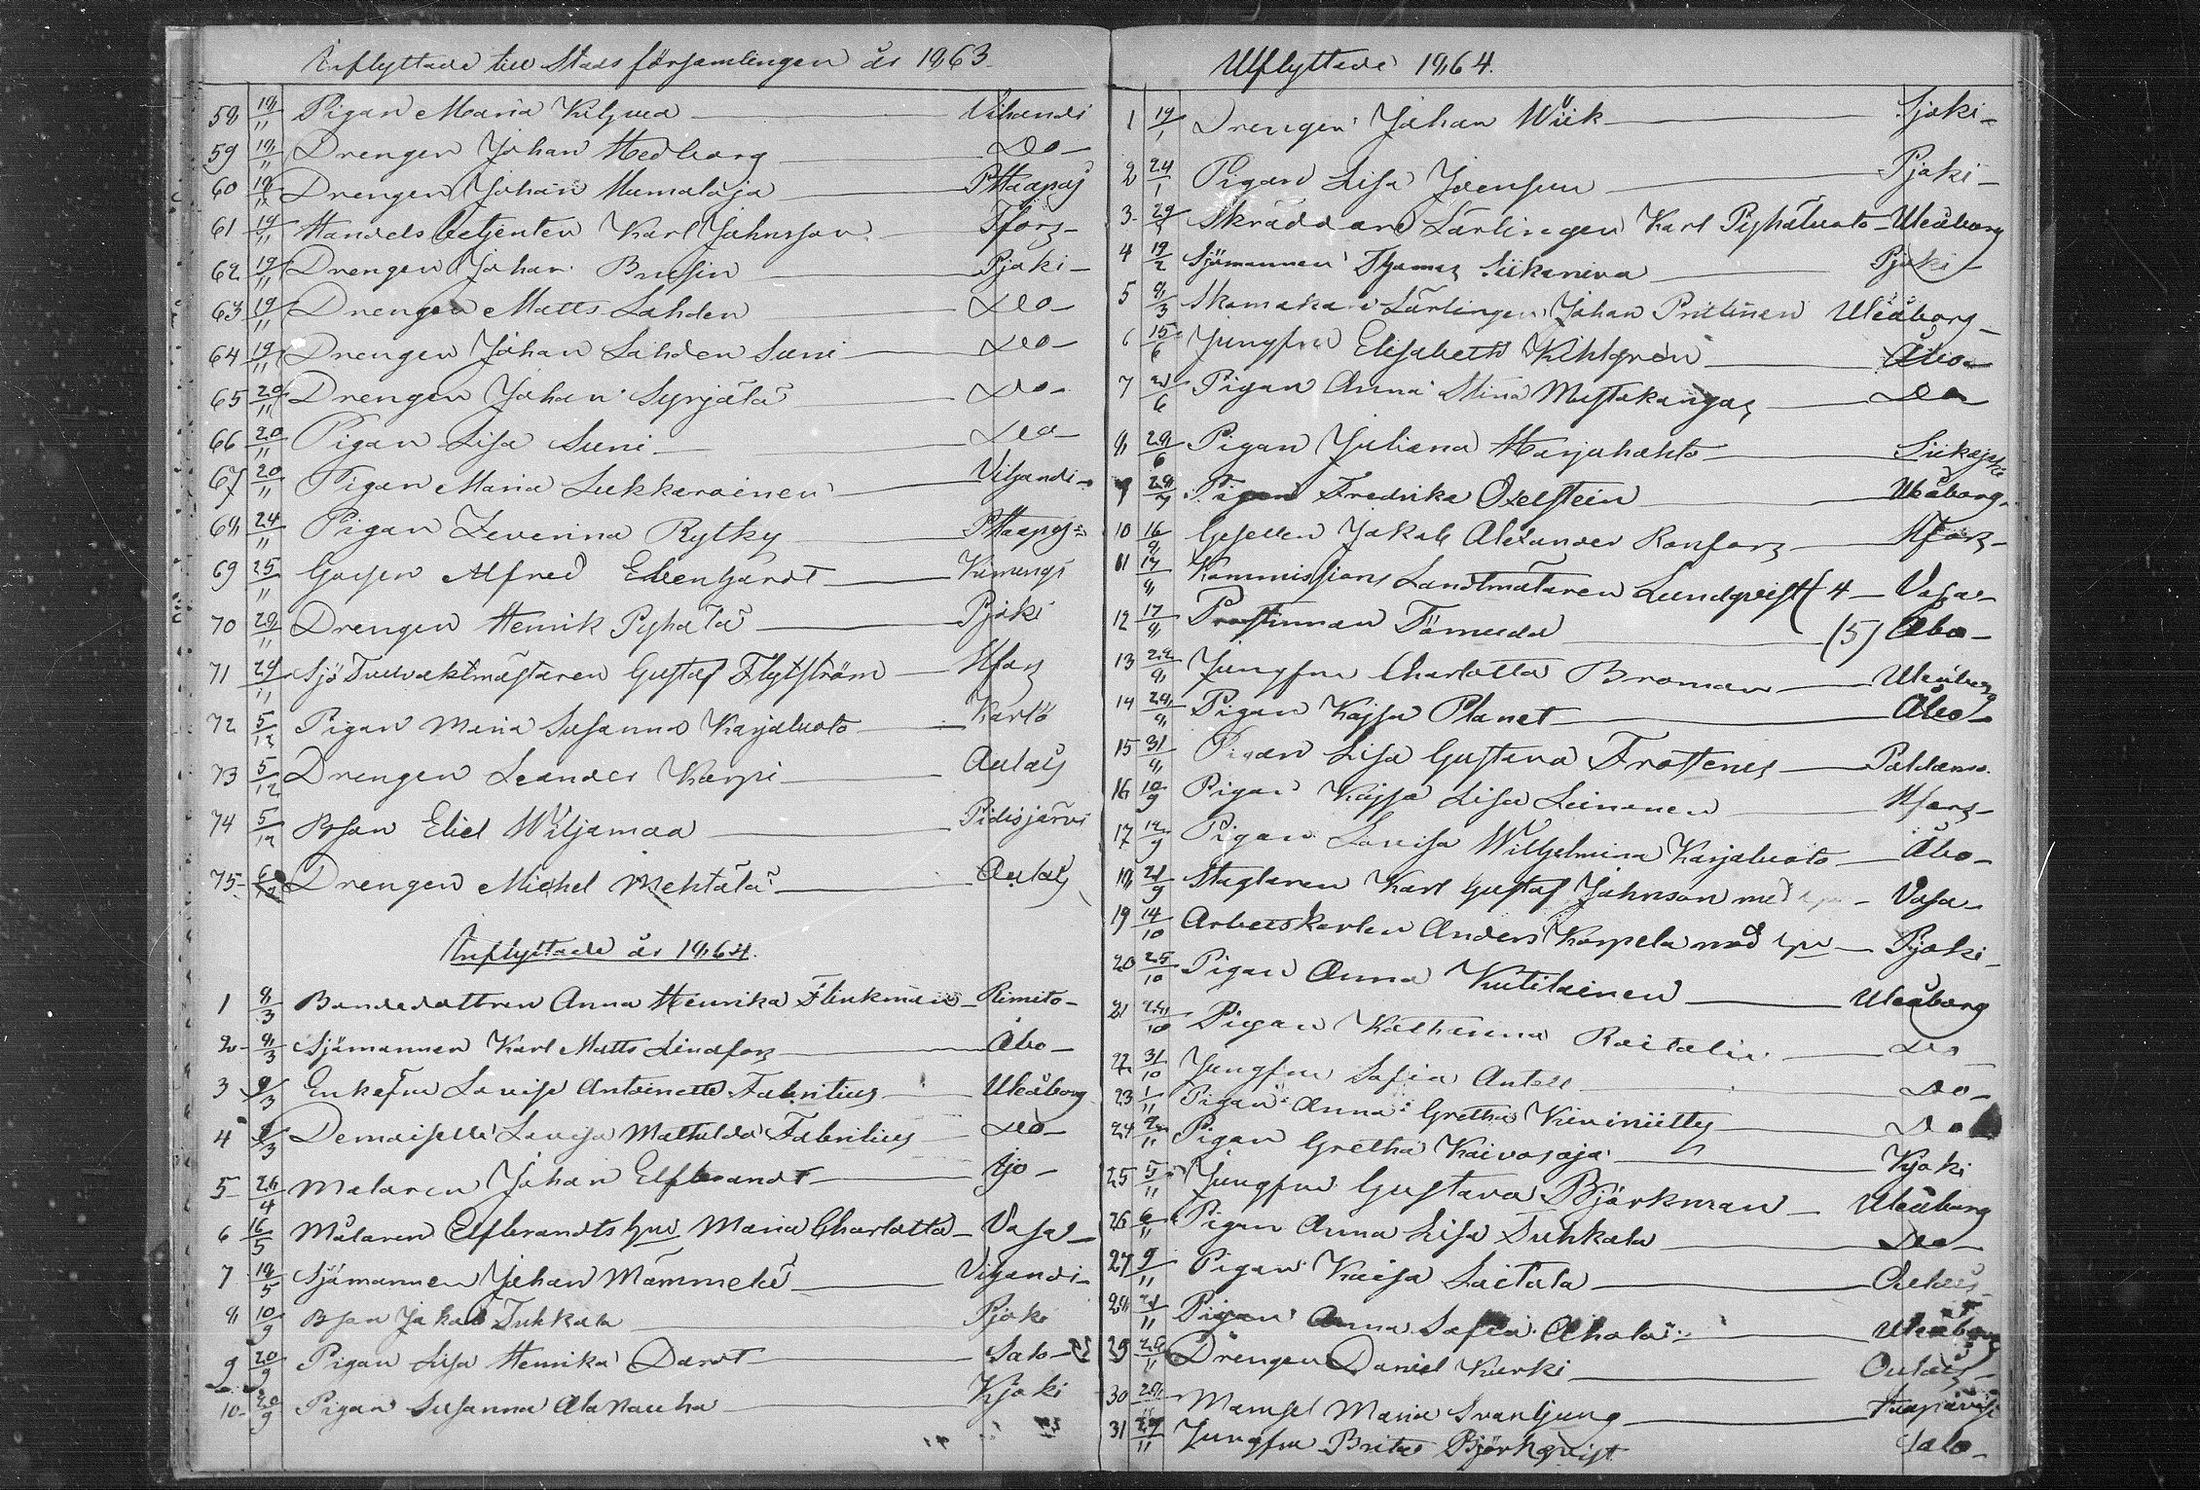 Inflyttade till Stadsförsamlingen år 1863.
58 18/11 Pigan Maria Kiljuea Vihandi
59 18/11 Drengen Johan Hedborg Do
60 18/11 Drengen Johan Mumaloja PHaapaj
61 19/11 Handels betjenten Karl Johnsson Tfors
62 19/11 Drengen Johan Brusin Pjoki
63 19/11 Drengen Matts Lahden Do
64 19/11 Drengen Johan Lahden Suni Do
65 20/11 Drengen Johan Syrjälä Do
66 20/11 Pigan Lisa Suni Do
67 20/11 Pigan Maria Lukkaroinen Vihandi
68 24/11 Pigan Zeverina Rytky PHaapaj
69 25/11 Alfred Ebenhardt
70 28/11 Drengen Henrik Pyhälä Pjoki
71 29/11 Sjö Gustaf Flytström Hfors
72 5/12 Pigan Maria Susanna Karjaluoto Karlö
73 5/12 Drengen Leander Karpi Oulais
74 5/12 Bson Eliel Wiljamaa Pidisjärvi
75 Drengen Michel Mehtälä Oulais
Inflyttade år 1864.
1 8/3 Bondedottren Anna Henrika Flinkman Rimito
2 8/3 Sjömannen Karl Matts Lindfors Åbo
3 9/3 Enkefru Lovisa Antoinette Fabritius Uleåborg
4 9/3 Demoiselle Lovisa Mathilda Fabritius Do
5 26/4 Målaren Johan Elfbrandt Ijo
6 16/5 Målaren Elfbrandts hu Maria Charlotta Vasa
7 18/5 Sjömannen Johan Mämmelä Vihandi
8 10/9 Bson Jakob Tuhkala Pjoki
9 20/9 Pigan Lisa Henrika Dardt Salo
10 20/9 Pigan Susanna Alanauha Kjoki
Utflyttade 1864.
1 19/1 Drengen Johan Wiik Sjoki
2 24/1 Pigan Lisa Joensuu Pjoki
3 Skräddare Lärlingen Karl Pyhäluoto Uleåborg
4 19/2 Sjömannen Thomas Siikaniva Pjoki
5 8/3 Skomakare Lärlingen Johan Prittinen Uleåborg
6 15/6 Jungfru Elisabeth Åbo
7 Pigan Anna Stina Mustakangas Do
8 28/6 Pigan Juliana Harjahahto Siikajoki
9 28/7 Pigan Fredrika Oxelstein Uleåborg
10 16/8 Gesellen Jakob Alexander Ronfors Hfors
11 17/8 Kommissions Landtmätaren Lundqvist (4 Vasa
12 17/8 Prostinnan Törnudd (5) Åbo
13 22/8 Jungfru Charlotta Broman Uleåborg
14 28/8 Pigan Kajsa Planet Åbo
15 31/8 Pigan Lisa Gustava Frostenus Paldamo
16 10/9 Pigan Kajsa Lisa Leinonen Hfors
17 12/9 Pigan Lovisa Wilhelmina Karjaluoto Åbo
18 21/9 Karl Gustaf Johnson med Vasa
19 14/10 Arbetskarlen Anders Karpela med hu Pjoki
20 25/10 Pigan Anna Kutilainen Uleåborg
21 28/10 Pigan Katharina Raitalin Do
22 31/10 Jungfru Sofia Antell Do
23 1/11 Pigan Anna Gretha Kiviniitty Do
24 2/11 Pigan Gretha Kaivosoja Kjoki
25 5/11 Jungfru Gustava Björkman Uleåborg
26 6/11 Pigan Anna Lisa Tuhkala Do
27 9/11 Pigan Kaisa Laitala Oulais
28 21/11 Pigan Anna Sofia Ahola Uleåborg
29 26/11 Drengen Daniel Kurki Oulais
30 28/11 Mamsel Maria Svanljung Haapajärvi
31 29/11 Jungfru Brita Björkqvist Salo